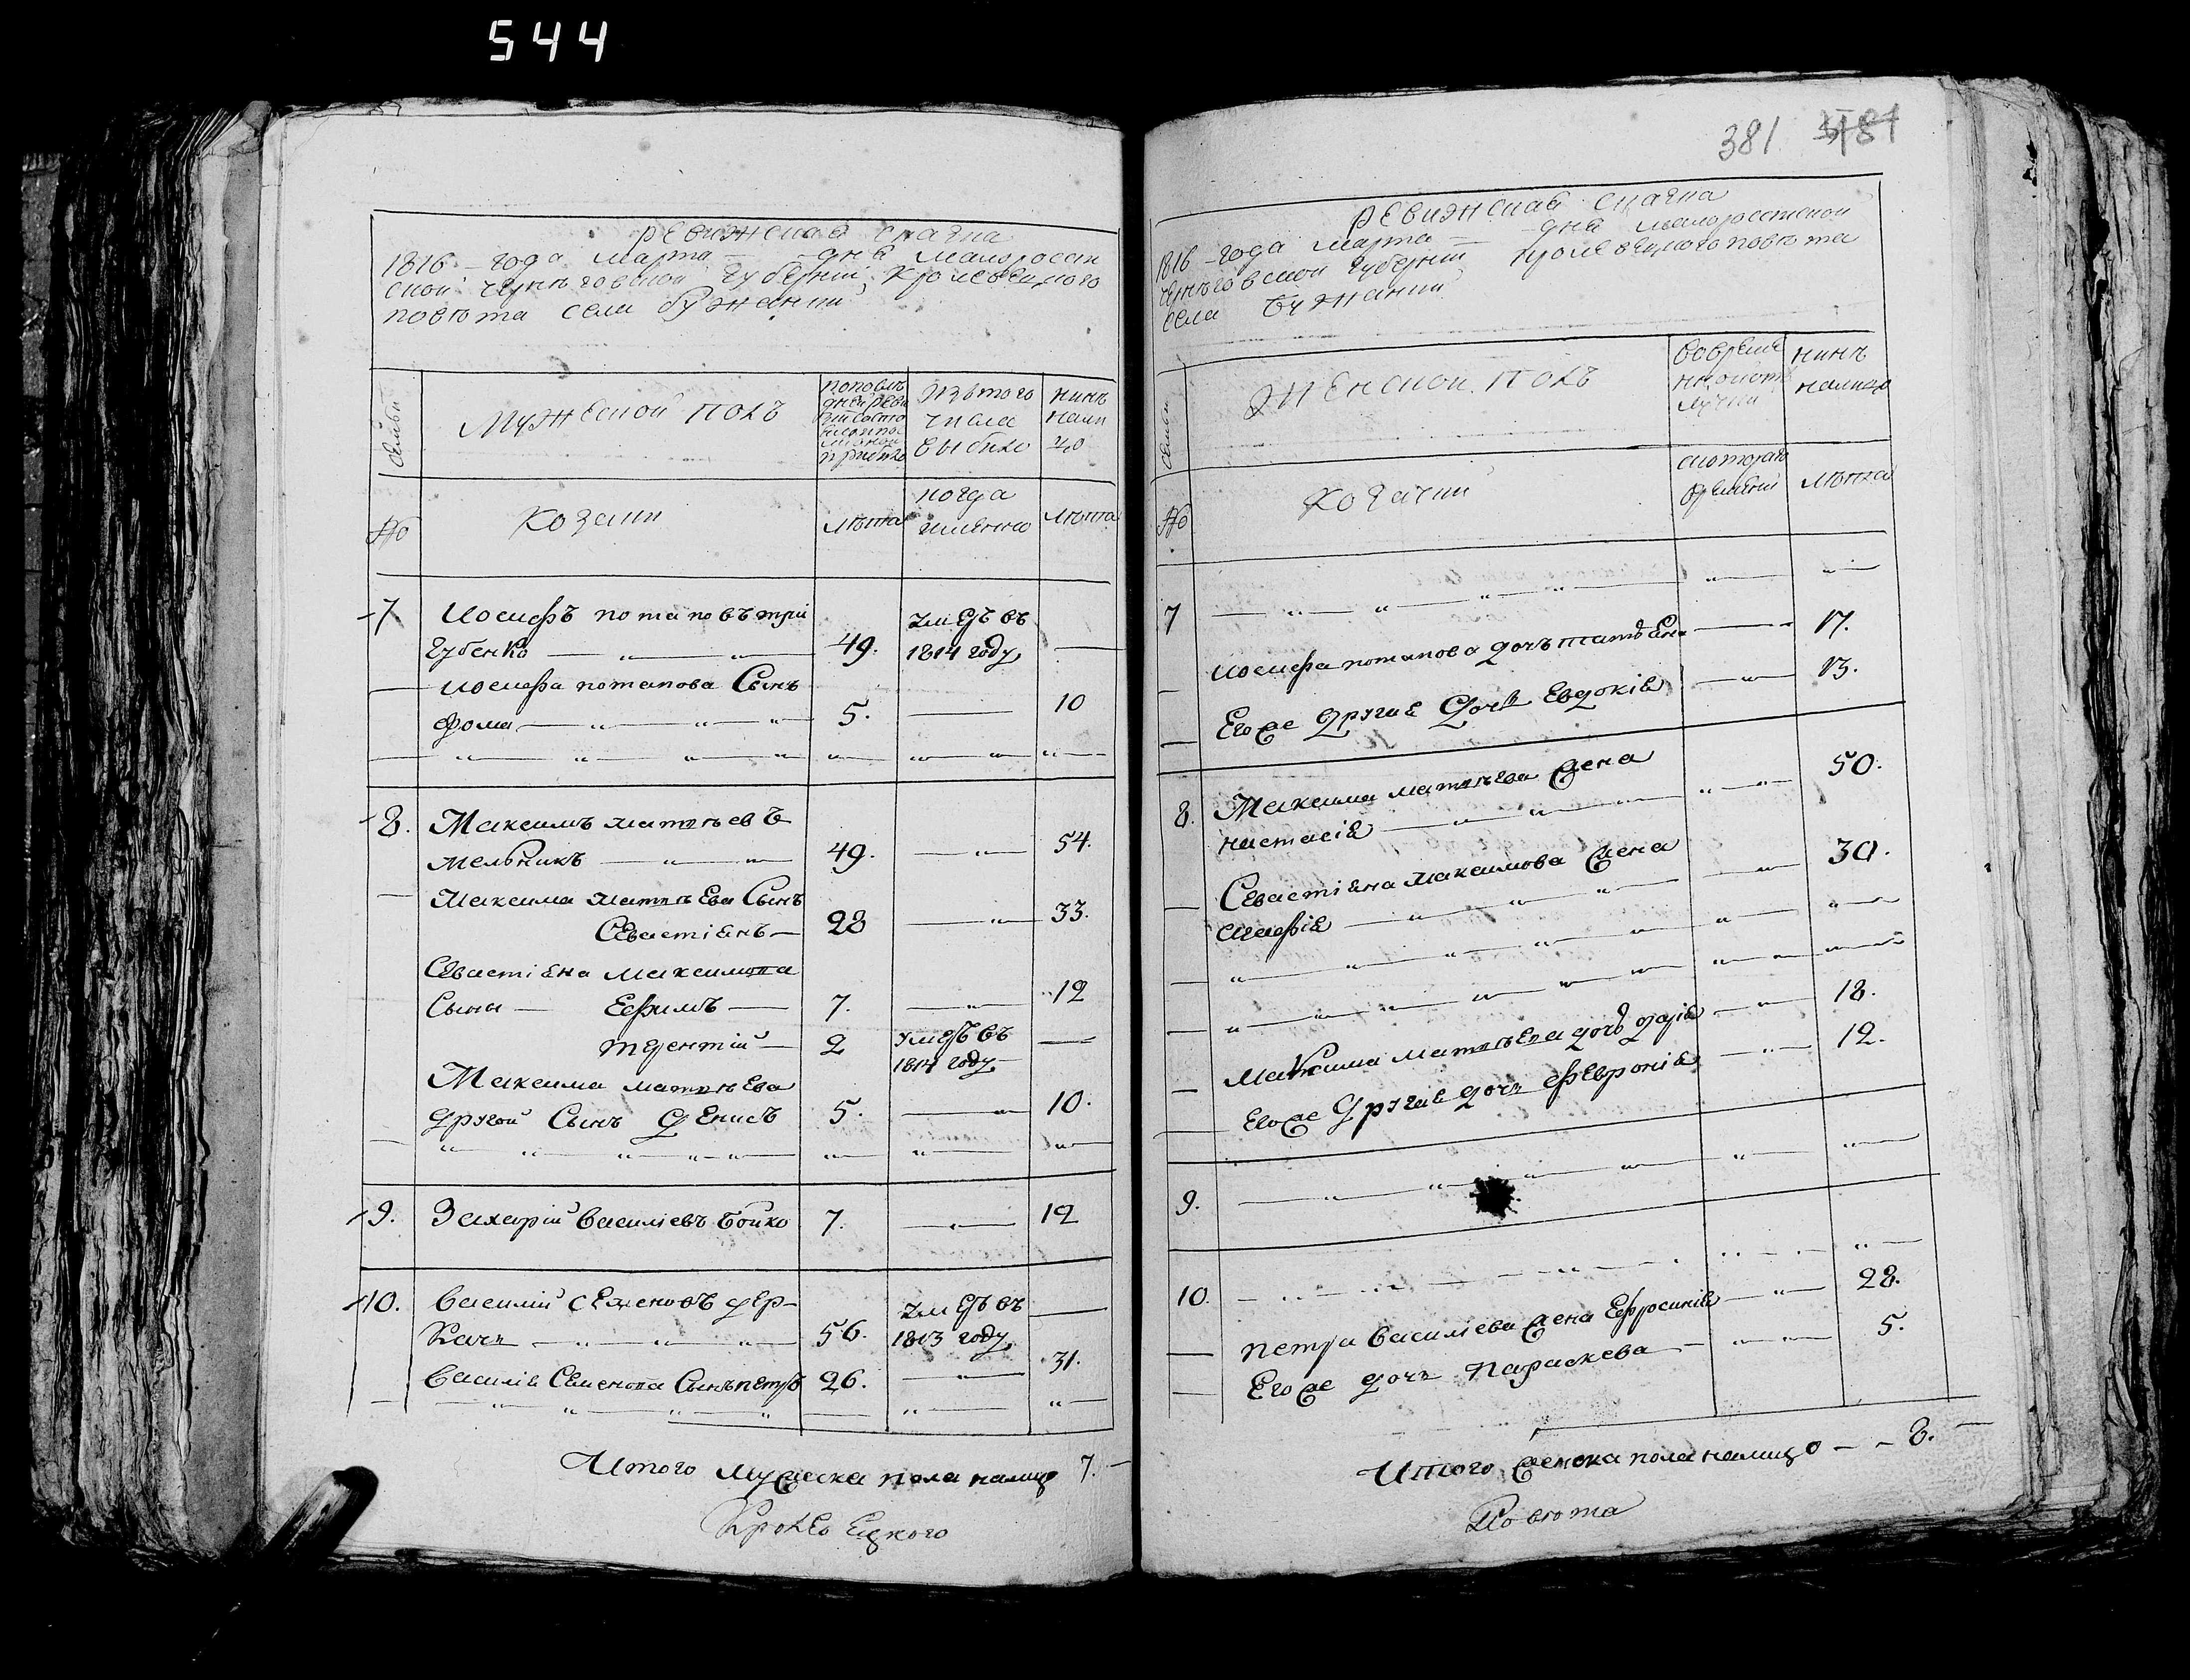 544
381 3181
Ревижская скаска
1816 - года марта - дня малоросий
ской черниговской губернии, кролевецкого
повѣта села бужанки
семьи
Мужеской полъ
изъ того
числа
выбыло
нинѣ
нали
цо
№
Козаки
лѣта
когда
именно
лѣта
7 Иосифъ потаповъ три
губенко 49. умеръ въ
1814 году
Иосифа потапова Сынъ
фома 5. 10
8. Максимъ матвѣевъ
мельникъ 49. 54.
Максима матвѣева Сынъ
Севастіянъ 28 33.
Севастіяна максимова
Сыны Ефимъ 7. 12
терентій 2 умеръ въ
1814 году
Максима матвѣева
другой Сынъ Денисъ 5. 10.
9. Захарій василіевъ бойко 7. 12
10. василий семеновъ дер-
качъ 56. умеръ въ
1813 году
василія Семенова Сынъ петръ 26. 31.
Итого мужеска пола налицо 7.
Кролевецкого
Ревижская скаска
1816 - года марта - дня малоросийской
черниговской губернии кролевецкого повѣта
села бужанки
семьи
женской полъ
нинѣ
налицо
№
Козачки
лѣта
7
иосифа потапова дочъ татіяна 17.
Его же другая дочъ Евдокія 13.
8. Максима матвѣева жена
настасія 50.
Севастіяна максимова жена
агафія 30.
Максима матвѣева дочъ дарія 18.
Его же другая дочъ феvронія 12.
9.
10.
петра василіева жена Ефросинія 28.
Его же дочъ параскева 5.
Итого женска пола налицо - - 8.
Повѣта